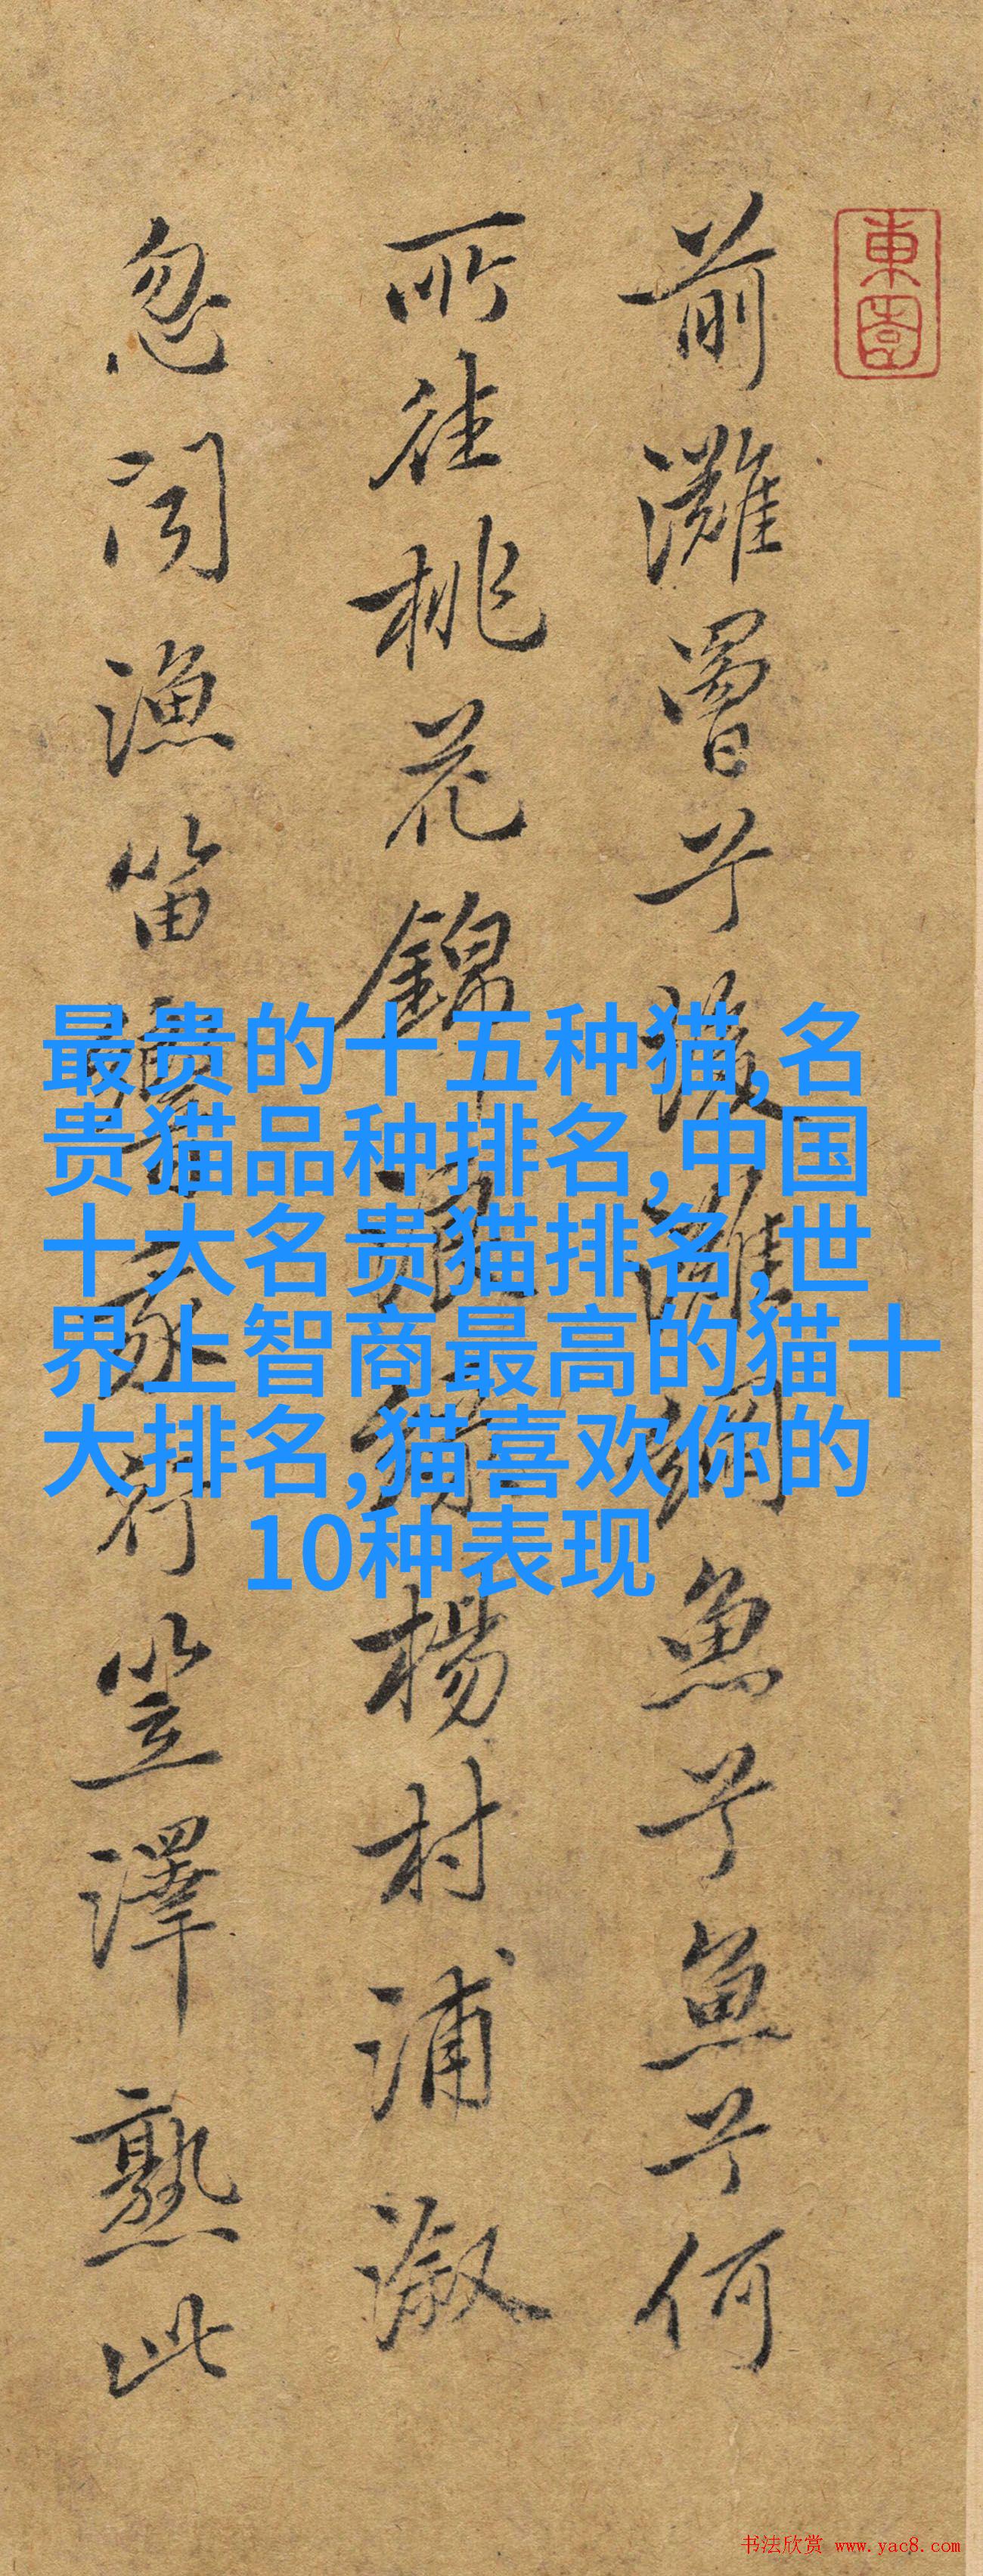 東園
前灘罾兮後灘網魚兮魚兮何
所往桃花錦浪綠楊村浦溆
忽闻漁笛 行笠澤熟此
最贵的十五种猫,名
贵猫品种排名,中国
十大名贵猫排名,世
界上智商最高的猫十
大排名,猫喜欢你的
10种表现
书法欣赏 www.yac8.com